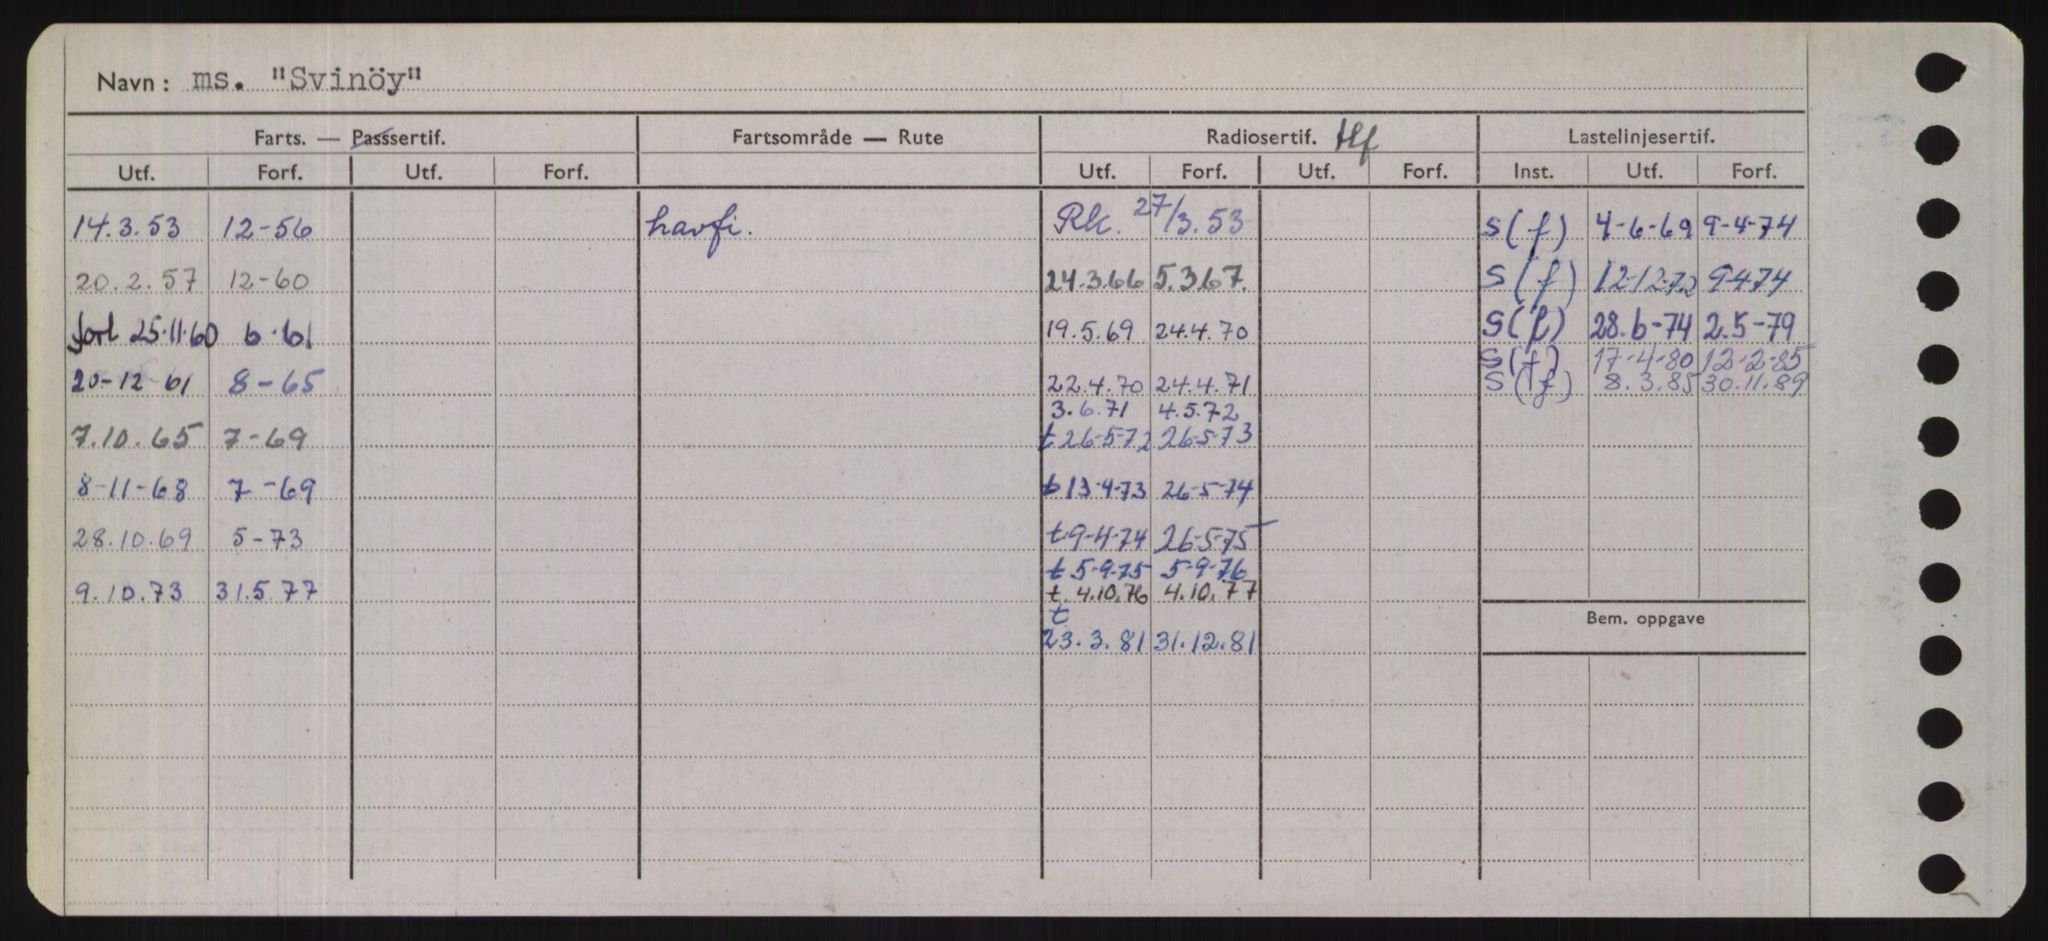 Navn: ms. "Svinöy"
Farts. — Passsertif. Fartsområde — Rute Radiosertif. tlf Lastelinjesertif.
Utf. Forf. Utf. Forf. Utf. Forf. Utf. Forf. Inst. Utf. Forf.
14.3.53 12-56 havfi. Rk. 27/3.53 S(f) 4-6-69 9-4-74
20.2.57 12-60 24.3.66 5.3.67. S(f) 12-12-72 9-4-74
forl 25.11.60 6-61 19.5.69 24.4.70 S(f) 28.6-74 2.5-79
S(f) 17-4-80 12-2-85
20-12-61 8-65 22.4.70 24.4.71 S(f) 8.3.85 30.11.89
3.6.71 4.5.72
7.10.65 7-69 t 26-5-72 26-5-73
8-11-68 7-69 t 13-4-73 26-5-74
28.10.69 5-73 t.9-4-74 26-5-75
t 5-9-75 5-9-76
9.10.73 31.5.77 t. 4.10.76 4.10.77
t Bem. oppgave
23.3.81 31.12.81